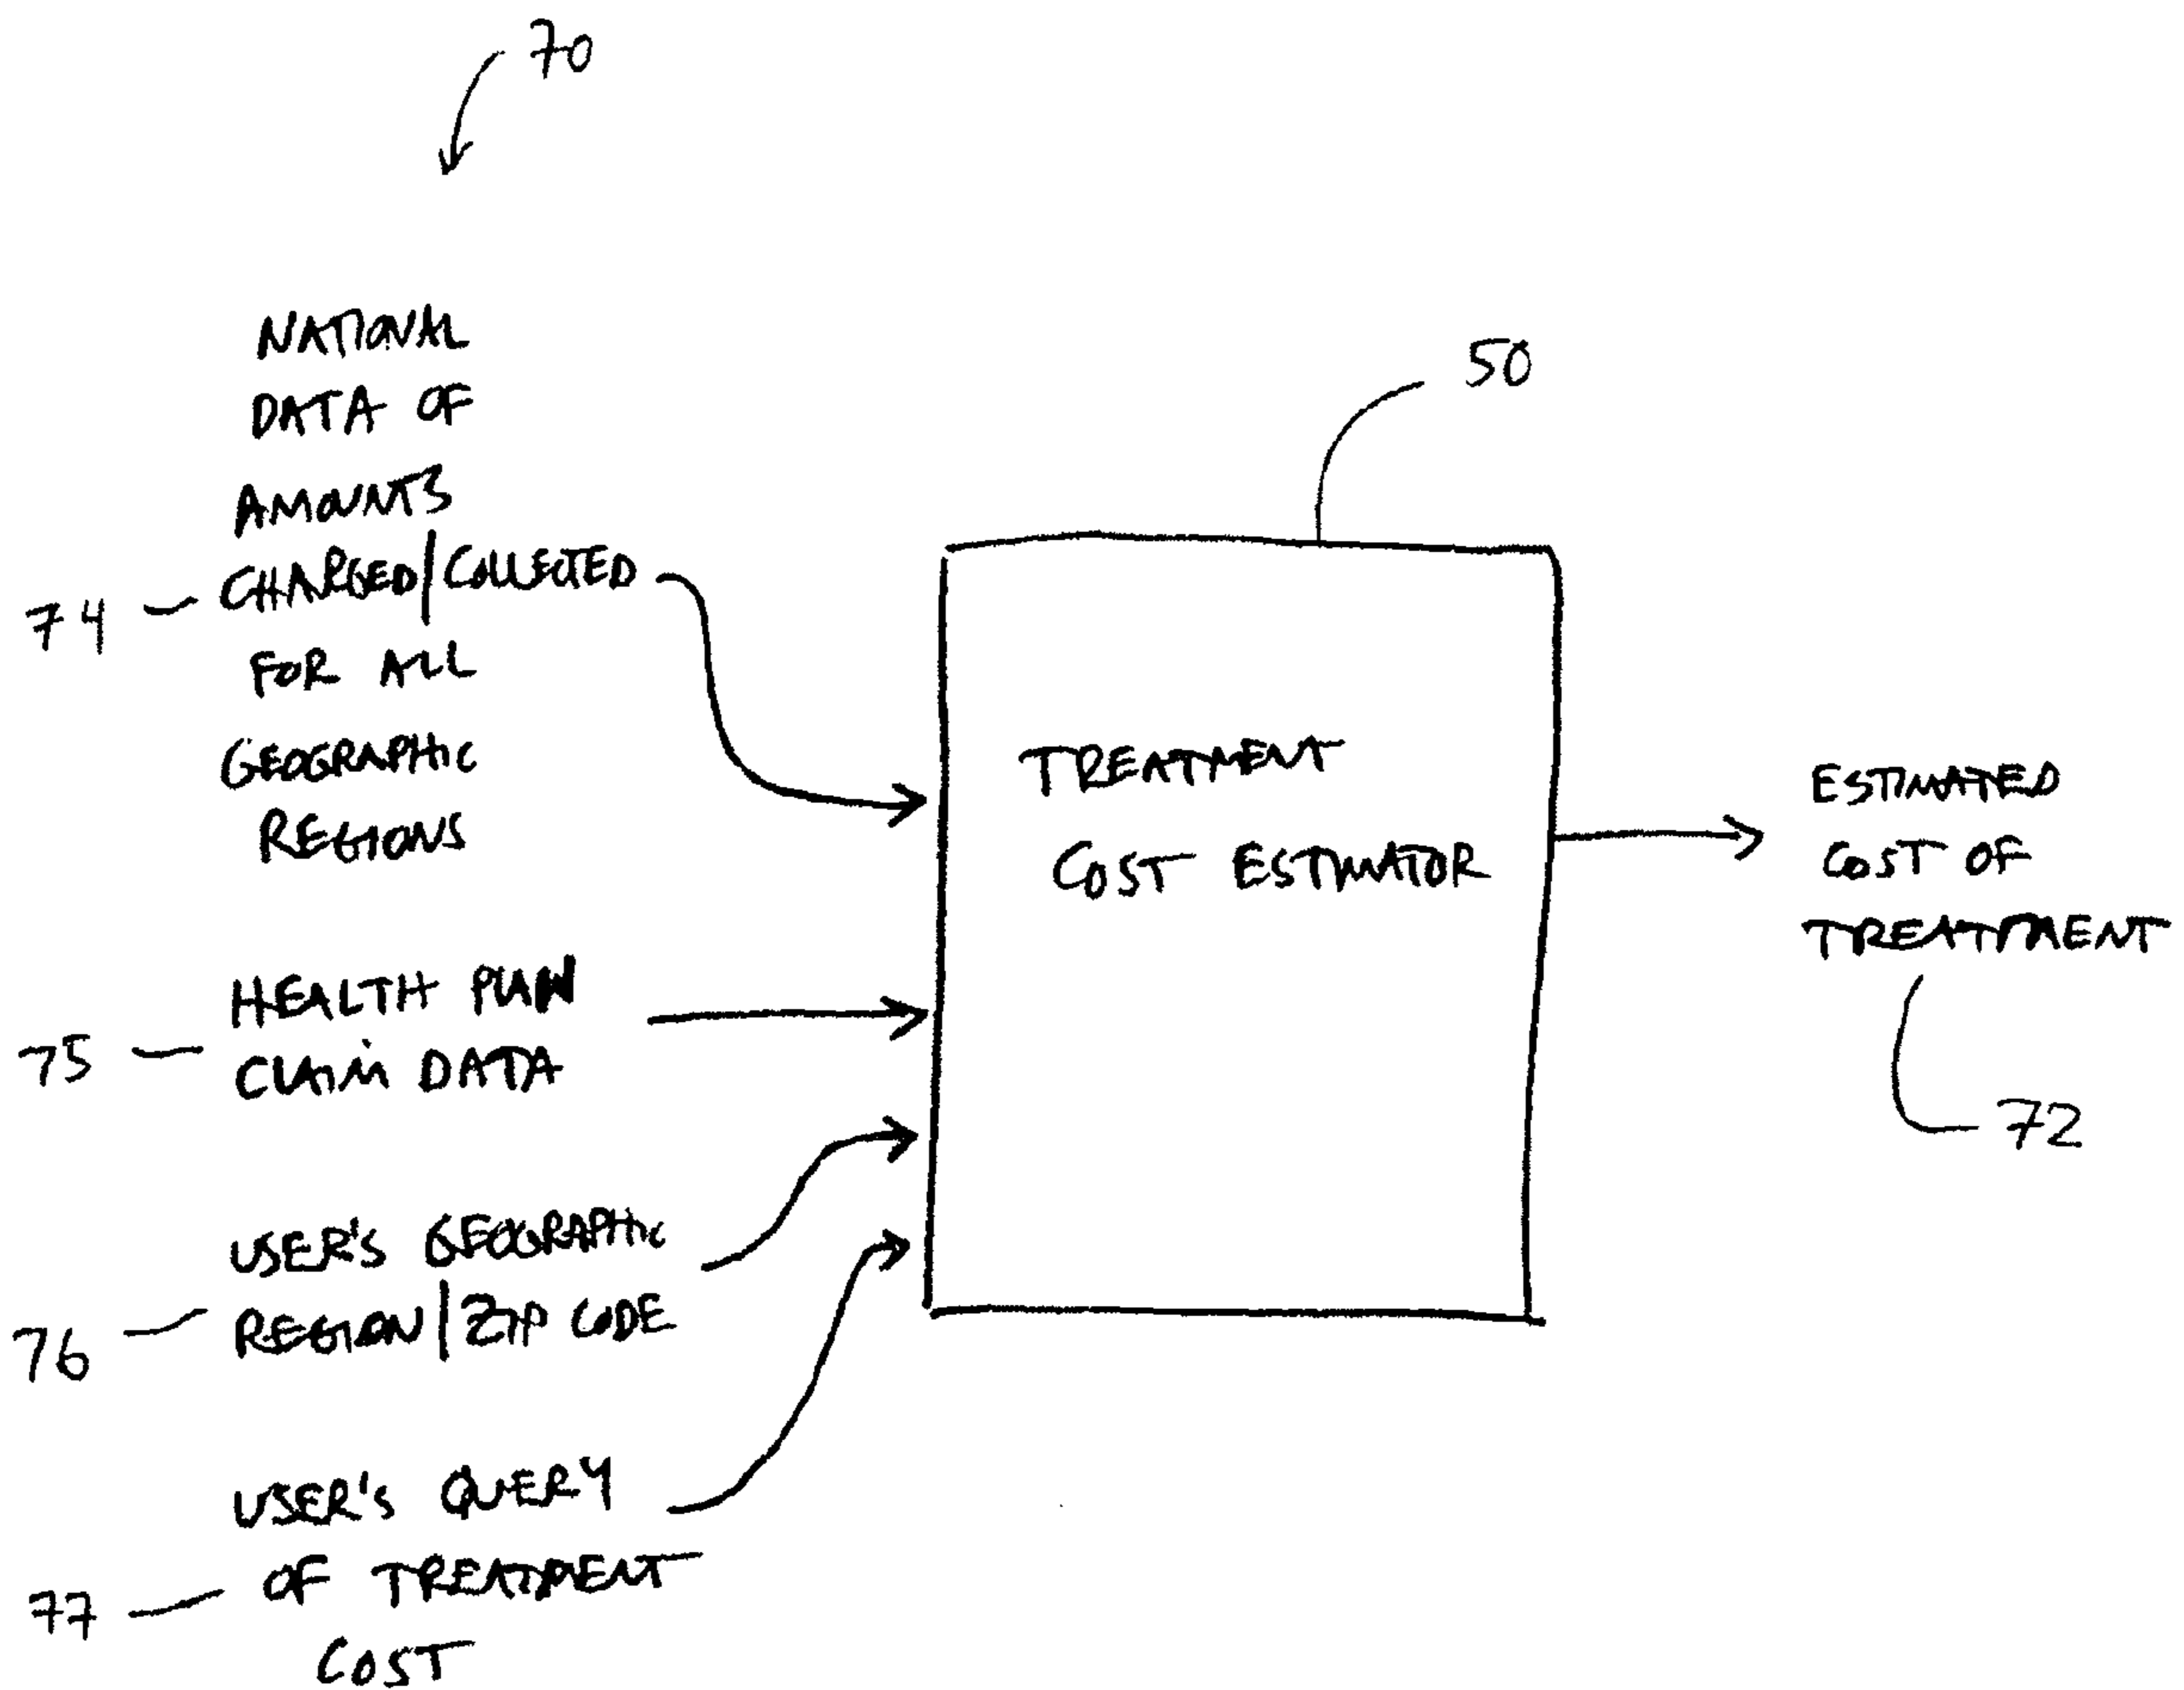 70
NATIONAL
DATA OF
AMOUNTS
CHARGED/COLLECTED
74
FOR ALL
GEOGRAPHIC
REGIONS
HEALTH PLAN
75
CLAIM DATA
USER'S GEOGRAPHIC
76
REGION/ZIP CODE
USER'S QUERY
77
OF TREATMENT
COST
50
TREATMENT
COST ESTIMATOR
ESTIMATED
COST OF
TREATMENT
72